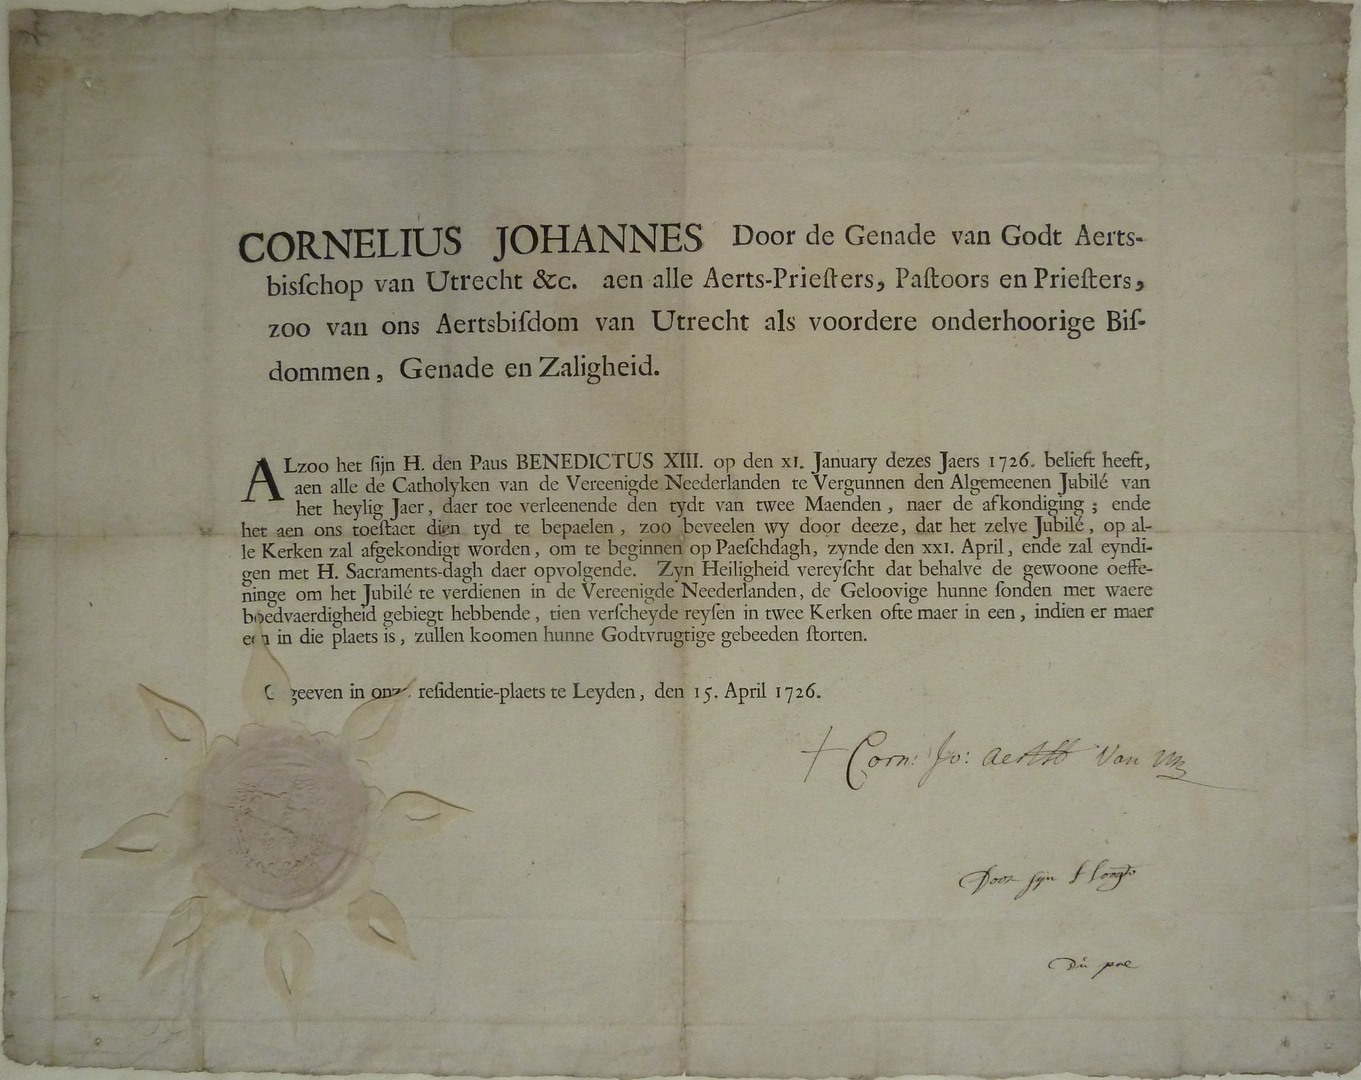 CORNELIUS JOHANNES Door de Genade van Godt Aerts-
bisſchop van Utrecht &c. aen alle Aerts-Prieſters, Paſtoors en Prieſters,
zoo van ons Aertsbiſdom van Utrecht als voordere onderhoorige Biſ-
dommen, Genade en Zaligheid.
ALzoo het ſijn H. den Paus BENEDICTUS XIII. op den XI. January dezes Jaers 1726. belieft heeft,
aen alle de Catholyken van de Vereenigde Neederlanden te Vergunnen den Algemeenen Jubilé van
het heylig Jaer, daer toe verleenende den tydt van twee Maenden, naer de afkondiging; ende
het aen ons toeſtaet dien tyd te bepaelen, zoo beveelen wy door deeze, dat het zelve Jubilé, op al-
le Kerken zal afgekondigt worden, om te beginnen op Paeſchdagh, zynde den XXI. April, ende zal eyndi-
gen met H. Sacraments-dagh daer opvolgende. Zyn Heiligheid vereyſcht dat behalve de gewoone oeffe-
ninge om het Jubilé te verdienen in de Vereenigde Neederlanden, de Geloovige hunne ſonden met waere
boedvaerdigheid gebiegt hebbende, tien verſcheyde reyſen in twee Kerken ofte maer in een, indien er maer
een in die plaets is, zullen koomen hunne Godtvrugtige gebeeden ſtorten.
Gegeeven in onze reſidentie-plaets te Leyden, den 15. April 1726.
+ Corn: Jo: Van
Door ſyn